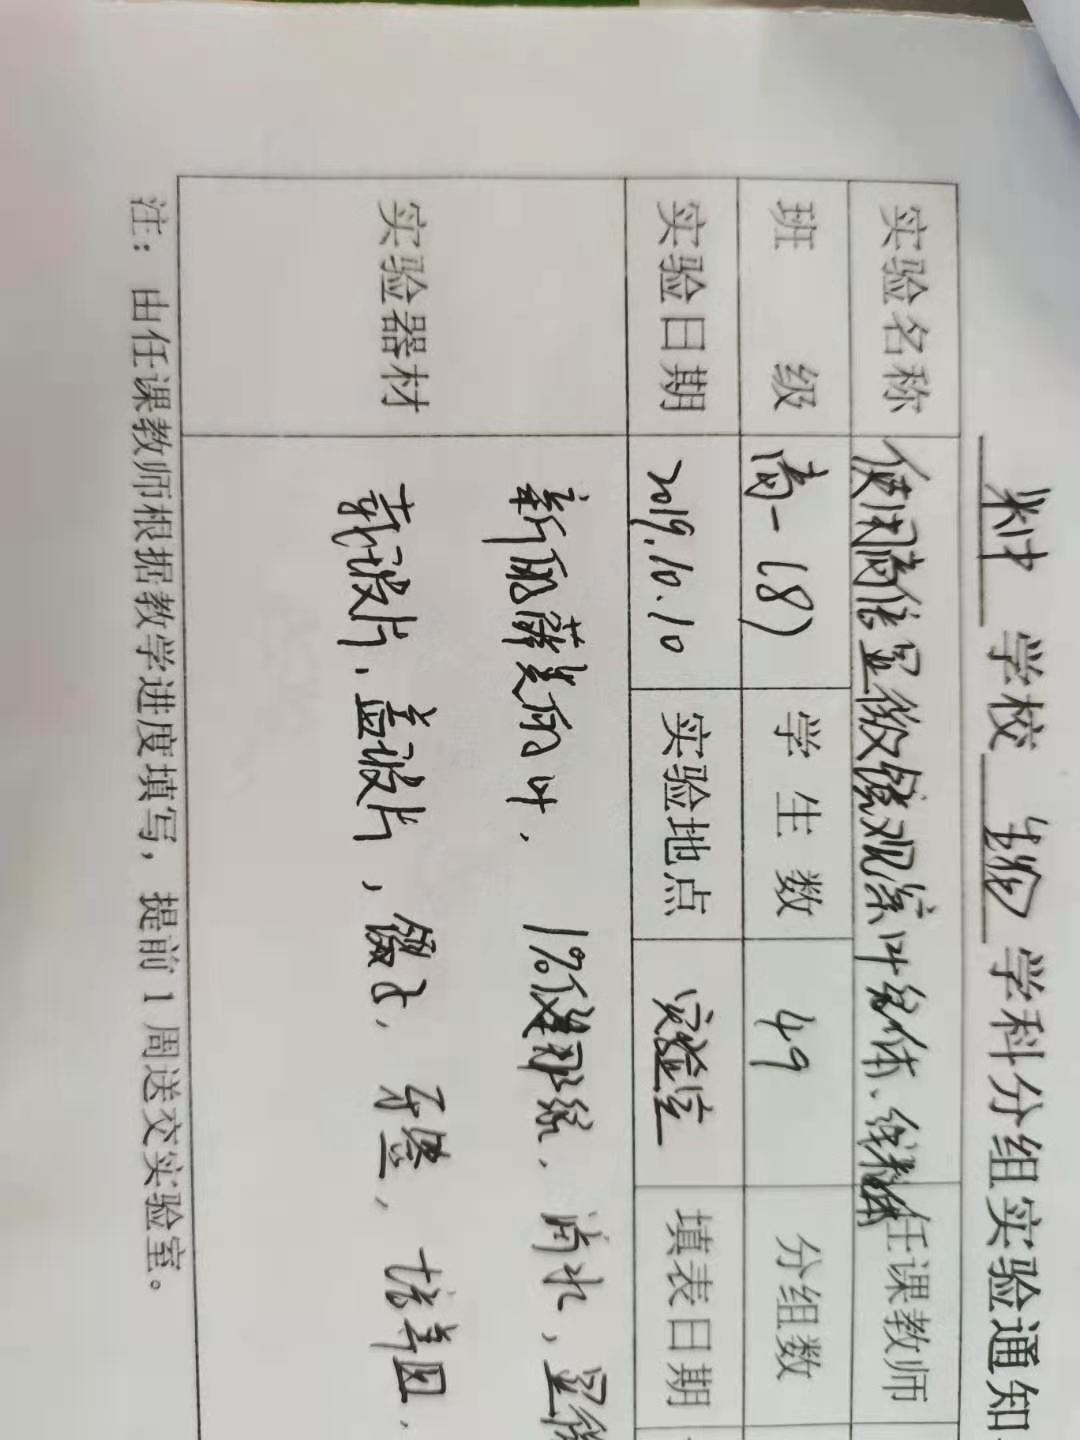 学校 生物 学科分组实验通知
实验名称 使用高倍显微镜观察叶绿体、线粒体 任课教师
班 级 高一(8) 学生数 49 分组数
实验日期 2019.10.10 实验地点 实验室 填表日期
实验器材 新鲜的藓类的叶, 1%健那绿, 清水, 显微
载玻片, 盖玻片, 镊子, 牙签, 培养皿,
注：由任课教师根据教学进度填写，提前1周送交实验室。